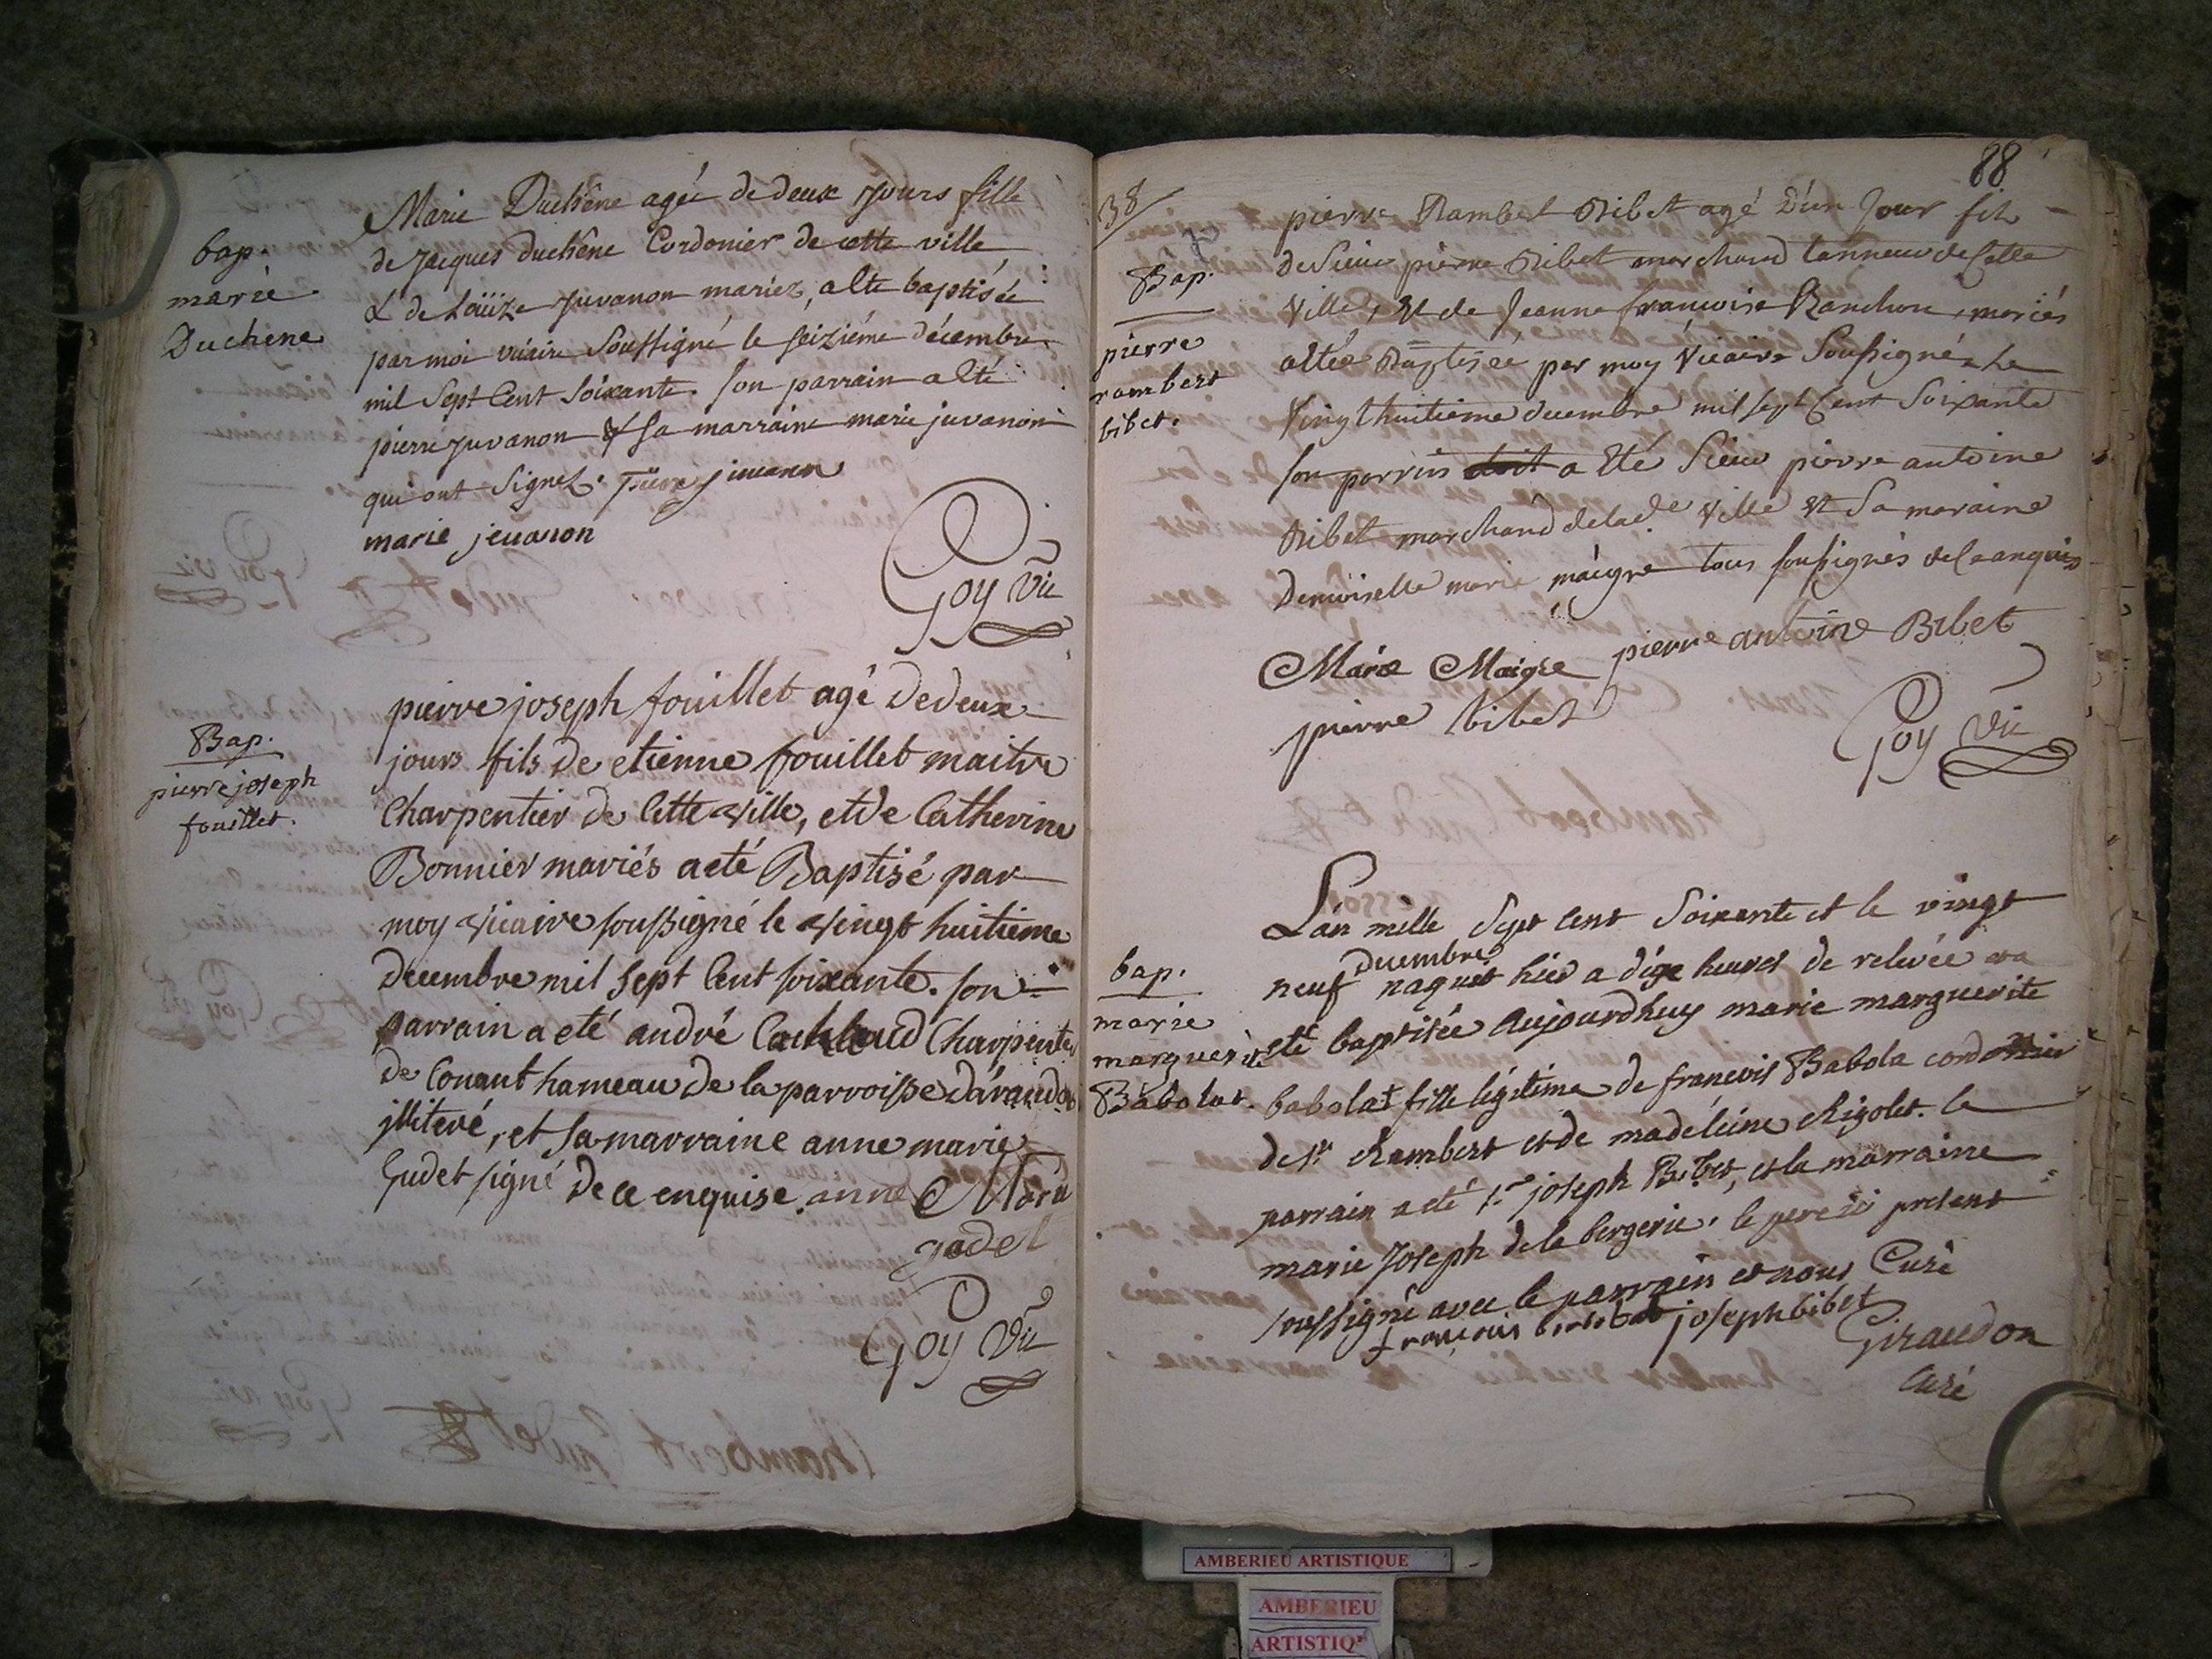 bap.
marie
Duchene
Marie Duchêne agée de deux jours fille
de jacques duchêne Cordonier de cette ville
& de Loüize juvanon mariez, a été baptisée
par moi vicaire Soussigné le seizième décembre
mil Sept Cent Soixante. son parrain a été
pierre juvanon & sa marraine marie juvanon
qui ont signez. pierre juvanon
marie jeuanon
Goy Vic
Bap.
pierre joseph
fouillet.
pierre joseph fouillet agé de deux
jours fils de etienne fouillet maitre
Charpentier de Cette ville, et de Catherine
Bonnier mariés a eté Baptisé par
moy vicaire soussigné le vingt huitieme
decembre mil sept Cent soixante. son
parrain a eté andré Charpentier
de Conant hameau de la parroisse d'arandas
illiteré, et sa marraine anne marie
Gudet signé de ce enquise. anne Marie
gudet
Goy Vic
88
38
Bap.
pierre
rambert
bibet.
pierre Rambert Bibet agé D'un Jour fils
de Sieur pierre Bibet marchand tanneur de Cette
Ville, et de Jeanne françoise Ranchon mariés
a étée Baptisée par moy Vicaire Soussigné Le
Vingt huitieme decembre mil sept Cent Soixante
son parrin a Eté Sieur pierre antoine
Bibet marchand de lade Ville et Sa maraine
Demoiselle marie maigre tous soussignés de Ce anquis
Marie Maigre pierre antoine Bibet
pierre bibet
Goy Vic
bap.
marie
marguerite
Babolat.
L'an mille Sept Cent Soixante et le vingt
decembre
neuf naquit hier a dize heures de relevée et a
eté baptisée aujourdhuy marie marguerite
babolat fille légitime de francois Babola cordonnier
de st rambert et de madeleine Rigolet. le
parrain a eté sr joseph Bibet, et la marraine
marie Joseph de la bergerie. le pere ici present
soussigné avec le parrain et nous Curé
francois babolat joseph bibet
Giraudon
Curé
AMBERIEU ARTISTIQUE
AMBERIEU
ARTISTIQ